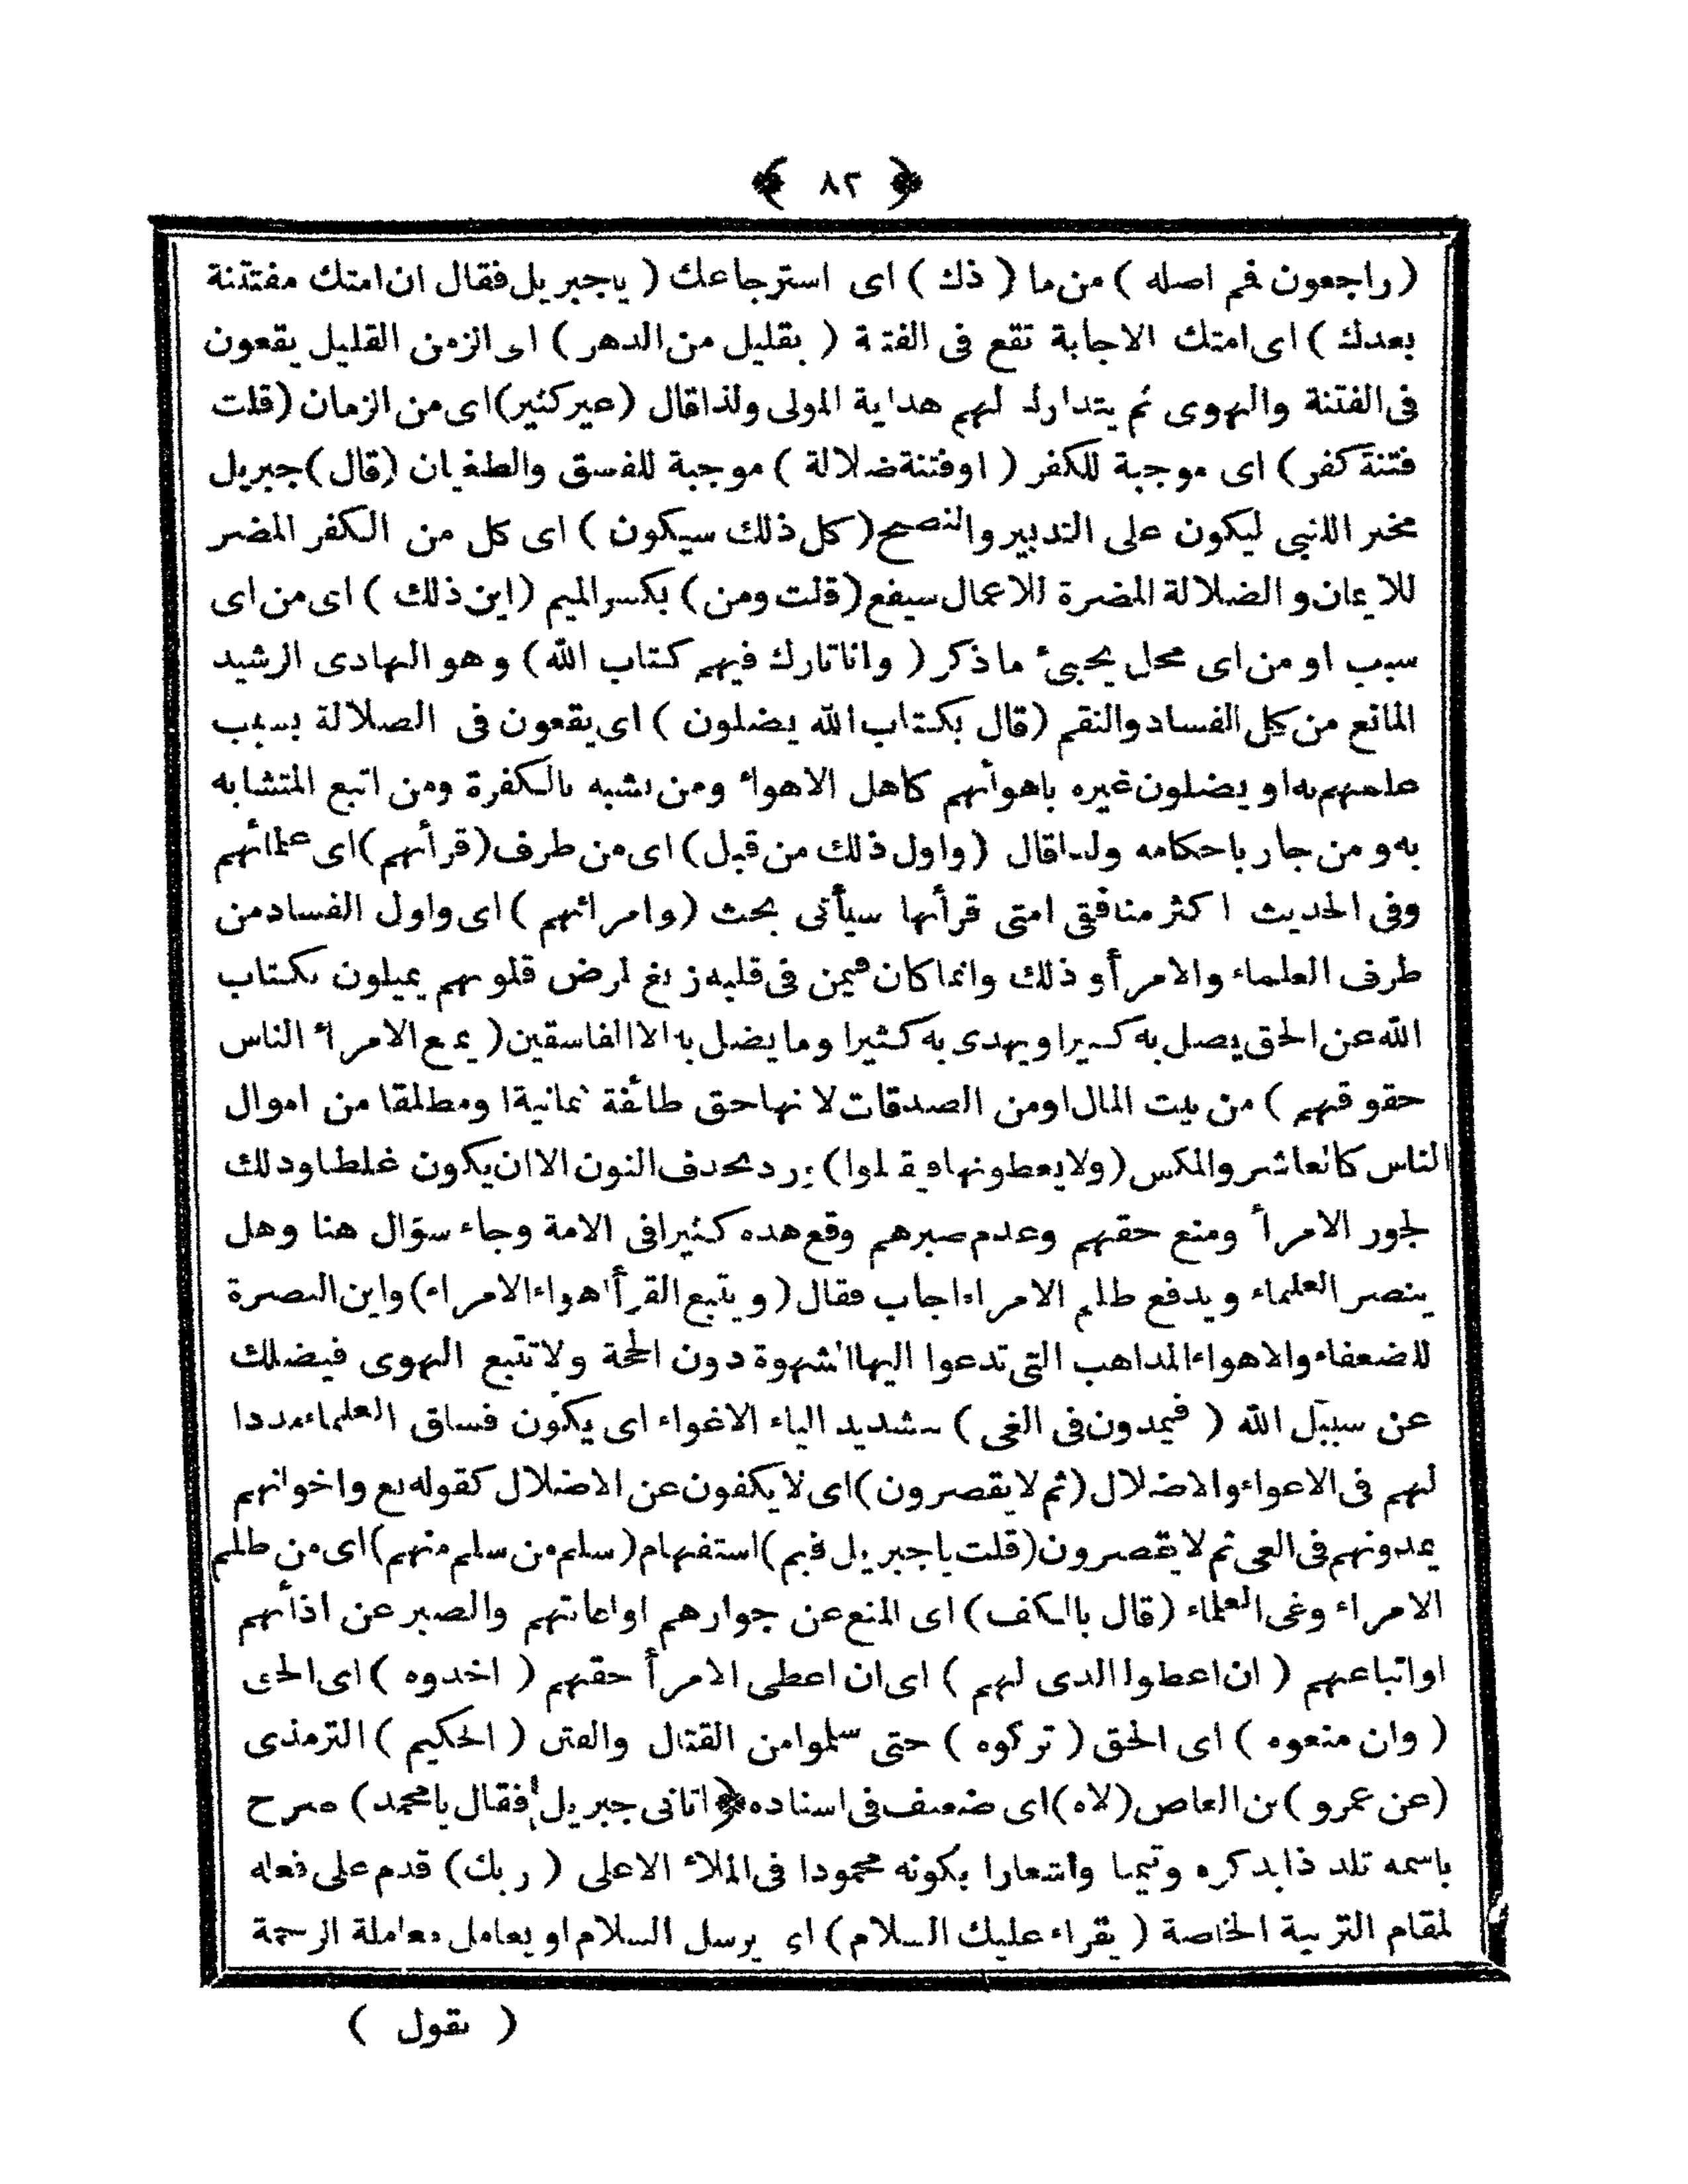 ﴿ ٨٢ ﴾
(راجعون فم اصله) من ما (ذك) اى استرجاعك (ياجبريل فقال ان امتك مفتتنة
بعدك) اى امتك الاجابة تقع فى الفتنة (بقليل من الدهر) اى الزمن القليل يقعون
فى الفتنة والهوى ثم يتدارك لهم هداية المولى ولذا قال (غير كثير) اى من الزمان (قلت
فتنة كفر) اى موجبة للكفر (او فتنة ضلالة) موجبة للفسق والطغيان (قال) جبريل
مخبر اللنبى ليكون على التدبير والنصح (كل ذلك سيكون) اى كل من الكفر المضر
للايمان والضلالة المضرة للاعمال سيقع (قلت ومن) بكسر الميم (اين ذلك) اى من اى
سبب او من اى محل يجيئ ما ذكر (وانا تارك فيهم كتاب الله) وهو الهادى الرشيد
المانع من كل الفساد والنقم (قال بكتاب الله يضلون) اى يقعون فى الضلالة بسبب
طعنهم به او يضلون غيره باهوأهم كاهل الاهواء ومن تشبه بالكفرة ومن اتبع المتشابه
به ومن جار باحكامه ولذا قال (واول ذلك من قبل) اى من طرف (قرأهم) اى علمائهم
وفى الحديث اكثر منافقى امتى قرأها سيأتى بحث (وامرائهم) اى واول الفساد من
طرف العلماء والامرأ وذلك وانما كان فيمن فى قلبه زيغ لمرض قلوبهم يميلون بكتاب
الله عن الحق يضل به كثيرا ويهدى به كثيرا وما يضل به الا الفاسقين (يمنع الامراء الناس
حقوقهم) من بيت المال او من الصدقات لانها حق طائفة ثمانية او مطلقا من اموال
الناس كالعاشر والمكس (ولا يعطونها فيقتلوا) يرد بحذف النون الا ان يكون غلطا وذلك
لجور الامرأ ومنع حقهم وعدم صبرهم وقع هذه كثيرا فى الامة وجاء سؤال هنا وهل
ينصر العلماء ويدفع ظلم الامراء اجاب فقال (ويتبع القرأ اهواء الامراء) واين النصرة
للضعفاء والاهواء المذاهب التى تدعوا اليها الشهوة دون الحجة ولا تتبع الهوى فيضلك
عن سبيل الله (فيمدون فى الغى) بتشديد الياء الاغواء اى يكون فساق العلماء مددا
لهم فى الاغواء والاضلال (ثم لا يقصرون) اى لا يكفون عن الاضلال كقوله تع واخوانهم
يمدونهم فى الغى ثم لا يقصرون (قلت ياجبريل فبم) استفهام (سلم من سلم منهم) اى من ظلم
الامراء وغى العلماء (قال بالكف) اى المنع عن جوارهم او اعانتهم والصبر عن اذأهم
او اتباعهم (ان اعطوا الذى لهم) اى ان اعطى الامرأ حقهم (اخذوه) اى الحق
(وان منعوه) اى الحق (تركوه) حتى سلموا من القتال والفتن (الحكيم) الترمذى
(عن عمرو) بن العاص (لاه) اى ضعيف فى اسناده ﴿اتانى جبريل فقال يامحمد) صرح
باسمه تلذذا بذكره وتيمنا واشعارا بكونه محمودا فى الملاء الاعلى (ربك) قدم على فعله
لمقام التربية الخاصة (يقراء عليك السلام) اى يرسل السلام او يعامل معاملة الرحمة
(يقول)